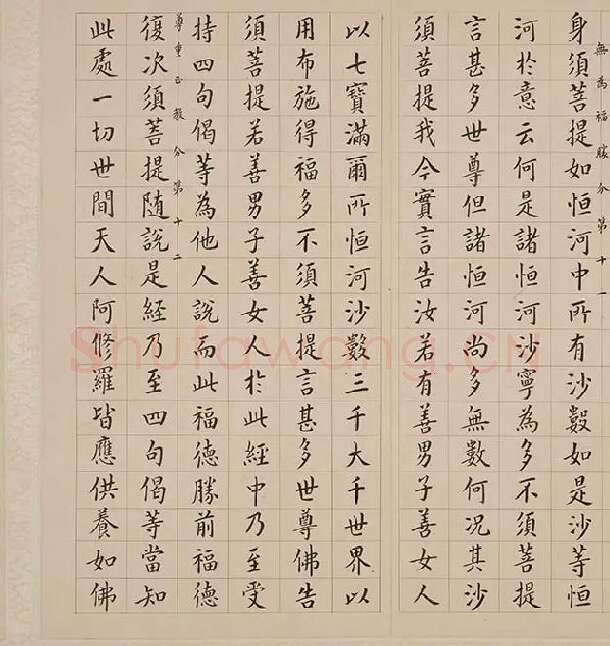 無為福勝分第十一
身須菩提如恒河中所有沙數如是沙等恒
河於意云何是諸恒河沙寧為多不須菩提
言甚多世尊但諸恒河尚多無數何況其沙
須菩提我今實言告汝若有善男子善女人
以七寶滿爾所恒河沙數三千大千世界以
用布施得福多不須菩提言甚多世尊佛告
須菩提若善男子善女人於此經中乃至受
持四句偈等為他人說而此福德勝前福德
尊重正教分第十二
復次須菩提隨說是經乃至四句偈等當知
此處一切世間天人阿修羅皆應供養如佛
Shufawang.CN